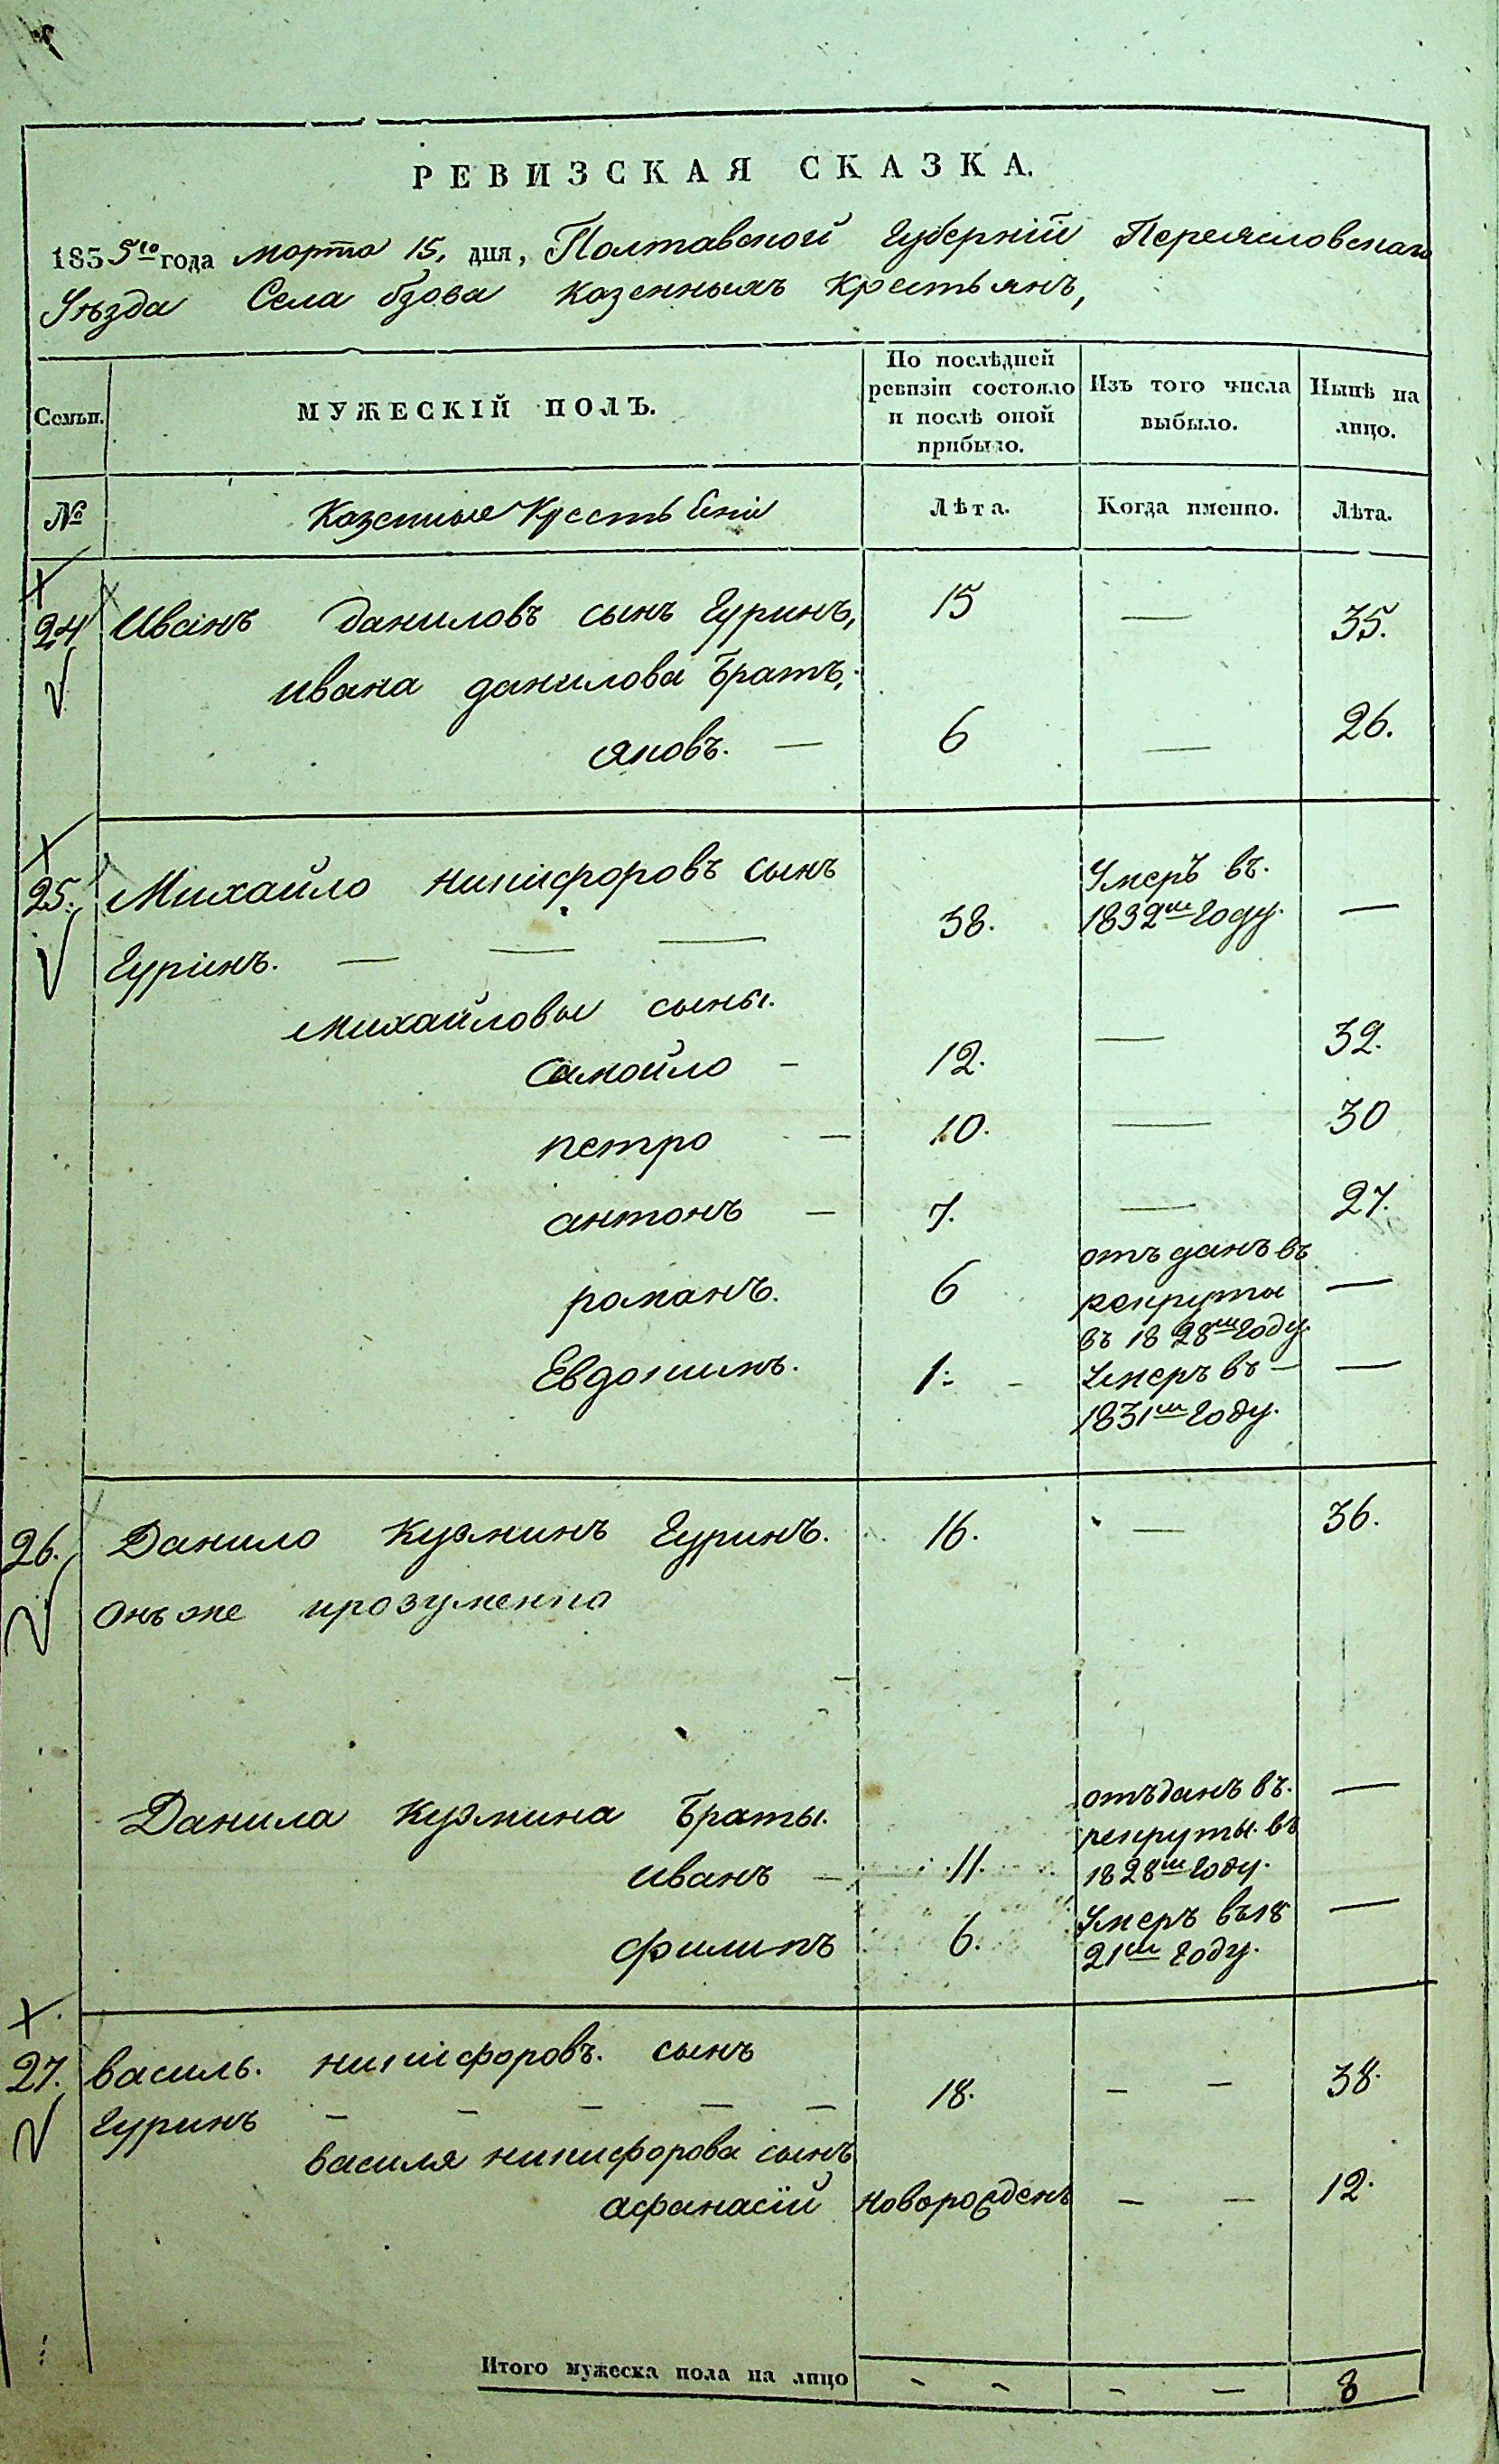 РЕВИЗСКАЯ СКАЗКА.
1835го года марта 15. дня, Полтавской Губерніи Переясловскаго
Уѣзда Села бзова казенныхъ крестьянъ,
Семьи.
МУЖЕСКІЙ ПОЛЪ.
По послѣдней ревизіи состояло и послѣ оной прибыло.
Изъ того числа выбыло.
Нынѣ на лицо.
№
Казенные Крестьяни
Лѣта.
Когда именно.
Лѣта.
24 Иванъ даниловъ сынъ Гуринъ, 15 — 35.
ивана данилова братъ,
яковъ. — 6 — 26.
25. Михайло никифоровъ сынъ
Гуринъ. — — — 38. Умеръ въ. 1832м году. —
михайловы сыны.
самойло — 12. — 32.
петро — 10. — 30
антонъ — 7. — 27.
романъ. 6 отъданъ въ рекруты въ 1828м году. —
Евдокимъ. 1. — Умеръ въ — 1831м году. —
26. Данило кузминъ Гуринъ. 16. — 36.
онъ же
Данила кузмина браты.
иванъ — 11. отъданъ въ. рекруты. въ 1828м году. —
филипъ 6. Умеръ въ 18 21м году. —
27. василь. никифоровъ. сынъ
Гуринъ — — — — — 18. — — 38.
василя никифорова сынъ
афанасій новорожденъ — — 12.
Итого мужеска пола на лицо — — — — 8